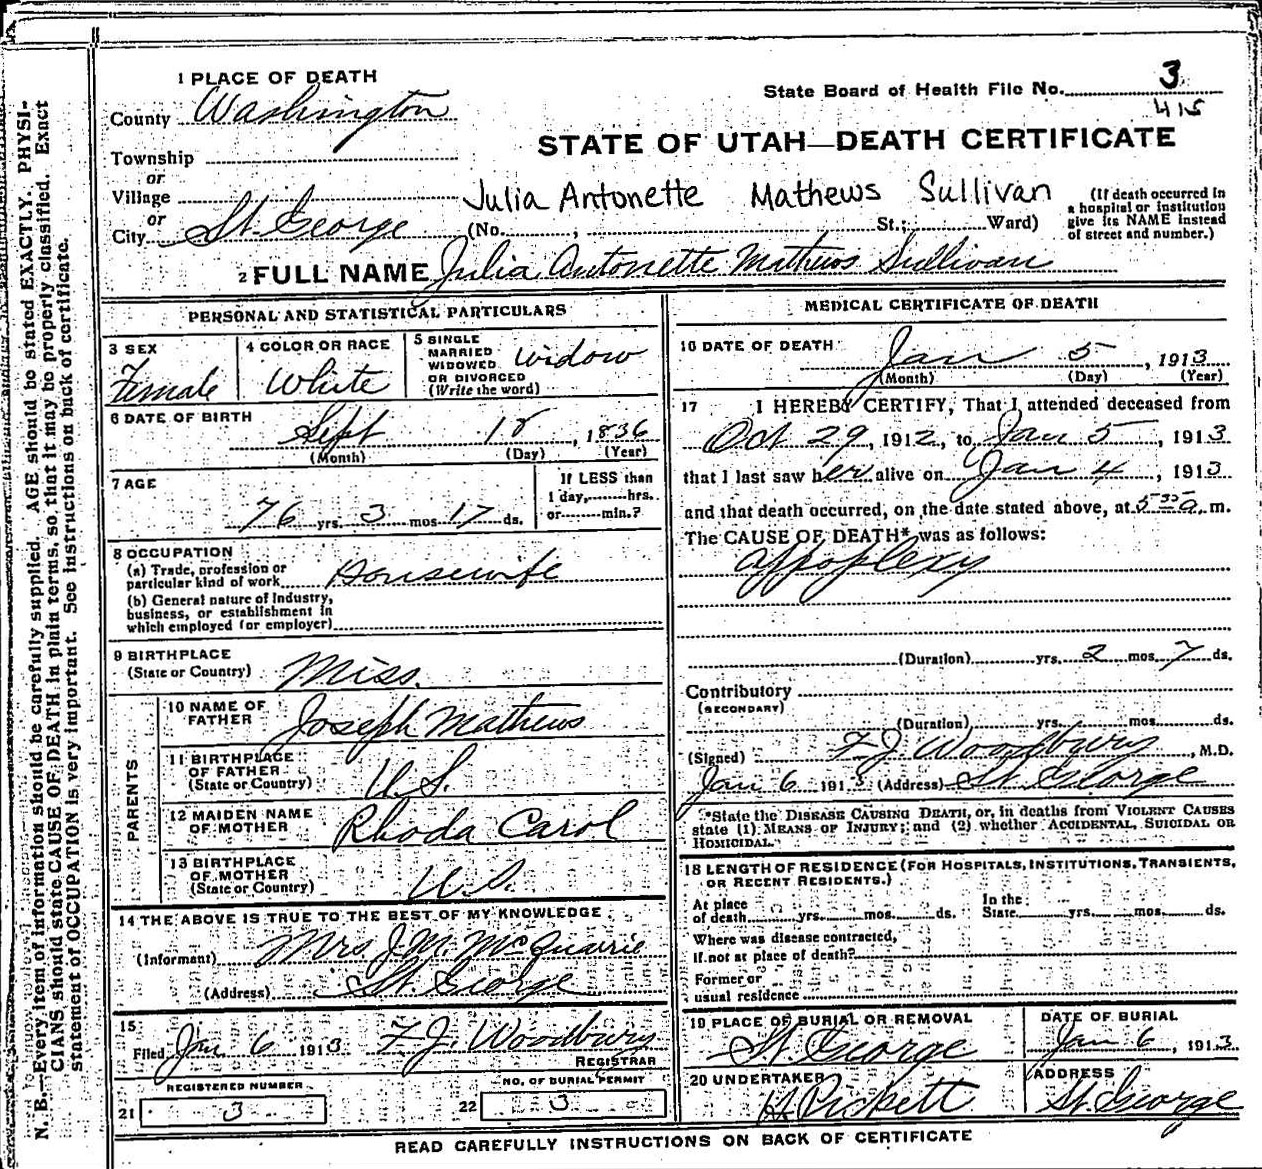 N. B.—Every item of information should be carefully supplied. AGE should be stated EXACTLY. PHYSI-
CIANS should state CAUSE OF DEATH in plain terms, so that it may be properly classified. Exact
statement of OCCUPATION is very important. See instructions on back of certificate.
1 PLACE OF DEATH
County Washington
Township
or
Village
or
City St. George
State Board of Health File No. 3
415
STATE OF UTAH—DEATH CERTIFICATE
Julia Antonette Mathews Sullivan
(No. ; St.; Ward)
(If death occurred in
a hospital or institution
give its NAME instead
of street and number.)
2 FULL NAME Julia Antonette Mathews Sullivan
PERSONAL AND STATISTICAL PARTICULARS
3 SEX
Female
4 COLOR OR RACE
White
5 SINGLE
MARRIED
WIDOWED
OR DIVORCED
(Write the word)
Widow
6 DATE OF BIRTH
Sept 18, 1836
(Month) (Day) (Year)
7 AGE
76 yrs. 3 mos. 17 ds.
If LESS than
1 day, hrs.
or min.?
8 OCCUPATION
(a) Trade, profession or
particular kind of work Housewife
(b) General nature of Industry,
business, or establishment in
which employed (or employer)
9 BIRTHPLACE
(State or Country) Miss.
PARENTS
10 NAME OF
FATHER Joseph Mathews
11 BIRTHPLACE
OF FATHER
(State or Country) U.S.
12 MAIDEN NAME
OF MOTHER Rhoda Carol
13 BIRTHPLACE
OF MOTHER
(State or Country) U.S.
14 THE ABOVE IS TRUE TO THE BEST OF MY KNOWLEDGE
(Informant) Mrs J.M. McQuarrie
(Address) St. George
15
Filed Jan 6 1913 F.J. Woodbury
REGISTRAR
REGISTERED NUMBER
21 3
NO. OF BURIAL PERMIT
22 3
MEDICAL CERTIFICATE OF DEATH
16 DATE OF DEATH
Jan 5, 1913
(Month) (Day) (Year)
17 I HEREBY CERTIFY, That I attended deceased from
Oct 29, 1912, to Jan 5, 1913
that I last saw her alive on Jan 4, 1913
and that death occurred, on the date stated above, at 5 35 a. m.
The CAUSE OF DEATH* was as follows:
Appoplexy
(Duration) yrs. 2 mos. 7 ds.
Contributory
(SECONDARY)
(Duration) yrs. mos. ds.
(Signed) F.J. Woodbury, M.D.
Jan 6 1913 (Address) St. George
*State the DISEASE CAUSING DEATH, or, in deaths from VIOLENT CAUSES
state (1) MEANS OF INJURY; and (2) whether ACCIDENTAL, SUICIDAL OR
HOMICIDAL.
18 LENGTH OF RESIDENCE (FOR HOSPITALS, INSTITUTIONS, TRANSIENTS,
OR RECENT RESIDENTS.)
At place
of death yrs. mos. ds.
In the
State yrs. mos. ds.
Where was disease contracted,
If not at place of death?
Former or
usual residence
19 PLACE OF BURIAL OR REMOVAL
St George
DATE OF BURIAL
Jan 6, 1913
20 UNDERTAKER
H Pickett
ADDRESS
St. George
READ CAREFULLY INSTRUCTIONS ON BACK OF CERTIFICATE